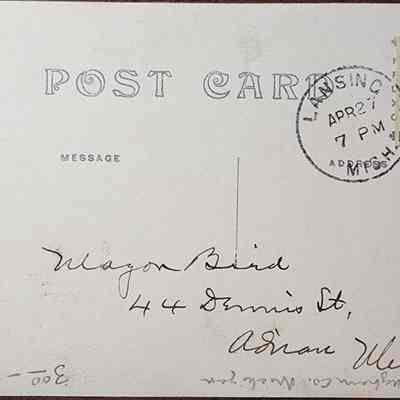 POST CARD
LANSING
APR 27
7 PM
MICH.
MESSAGE
ADDRESS
Mayon Bird
44 Dennis St,
Adrian
3.00
Ingham Co. Michigan